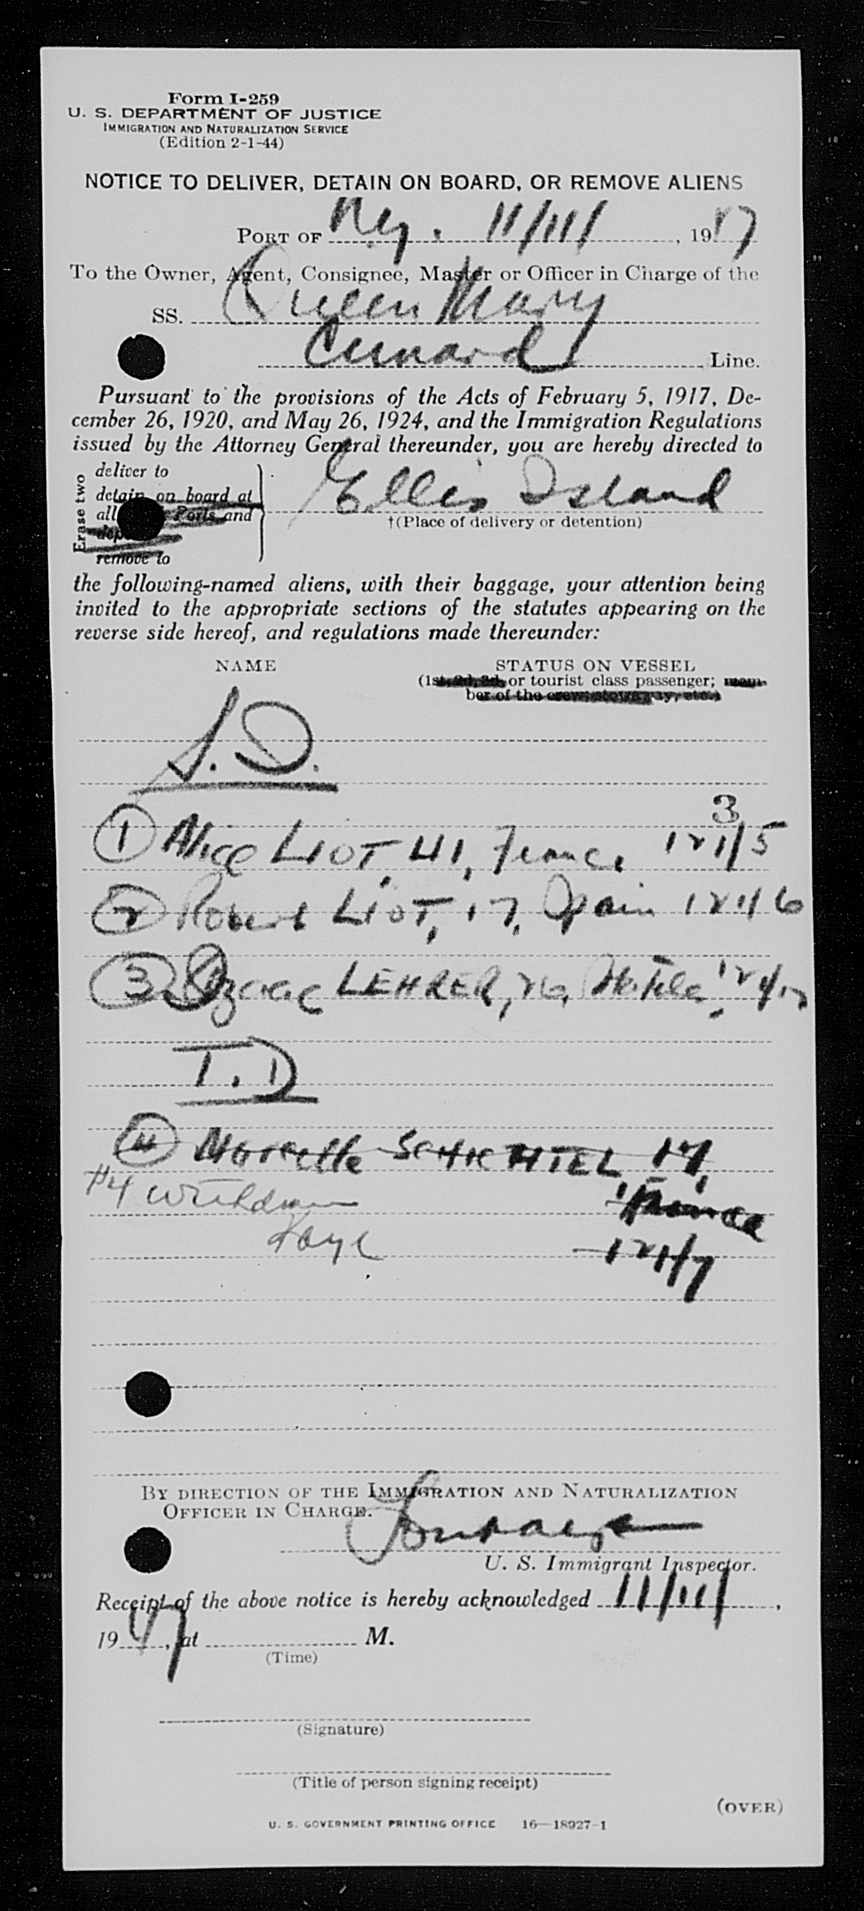 Form I-259
U. S. DEPARTMENT OF JUSTICE
IMMIGRATION AND NATURALIZATION SERVICE
(Edition 2-1-44)
NOTICE TO DELIVER, DETAIN ON BOARD, OR REMOVE ALIENS
PORT OF N.Y. 11/11/ , 1947
To the Owner, Agent, Consignee, Master or Officer in Charge of the
SS. Queen Mary
Cunard Line.
Pursuant to the provisions of the Acts of February 5, 1917, De-
cember 26, 1920, and May 26, 1924, and the Immigration Regulations
issued by the Attorney General thereunder, you are hereby directed to
Erase two
deliver to
detain on board at
all Ports and
remove to
Ellis Island
†(Place of delivery or detention)
the following-named aliens, with their baggage, your attention being
invited to the appropriate sections of the statutes appearing on the
reverse side hereof, and regulations made thereunder:
NAME STATUS ON VESSEL
(1st, 2d, 3d, or tourist class passenger; mem-
ber of the crew, stowaway, etc.)
S.D.
3
① Alice LIOT, 41, France 121/5
② Robert LIOT, 17, Spain 121/6
③ Izaac LEHRER, 26,
T.D
④ Marcelle 17,
France
121/7
#4 withdrawn
Kaye
BY DIRECTION OF THE IMMIGRATION AND NATURALIZATION
OFFICER IN CHARGE.
U. S. Immigrant Inspector.
Receipt of the above notice is hereby acknowledged 11/11/ ,
1947, at M.
(Time)
(Signature)
(Title of person signing receipt)
(OVER)
U. S. GOVERNMENT PRINTING OFFICE 16—18927-1